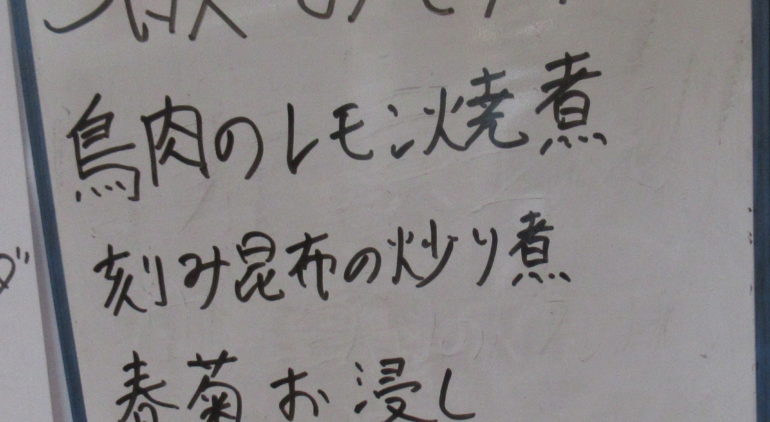 鳥肉のレモン焼煮
刻み昆布の炒り煮
春菊お浸し